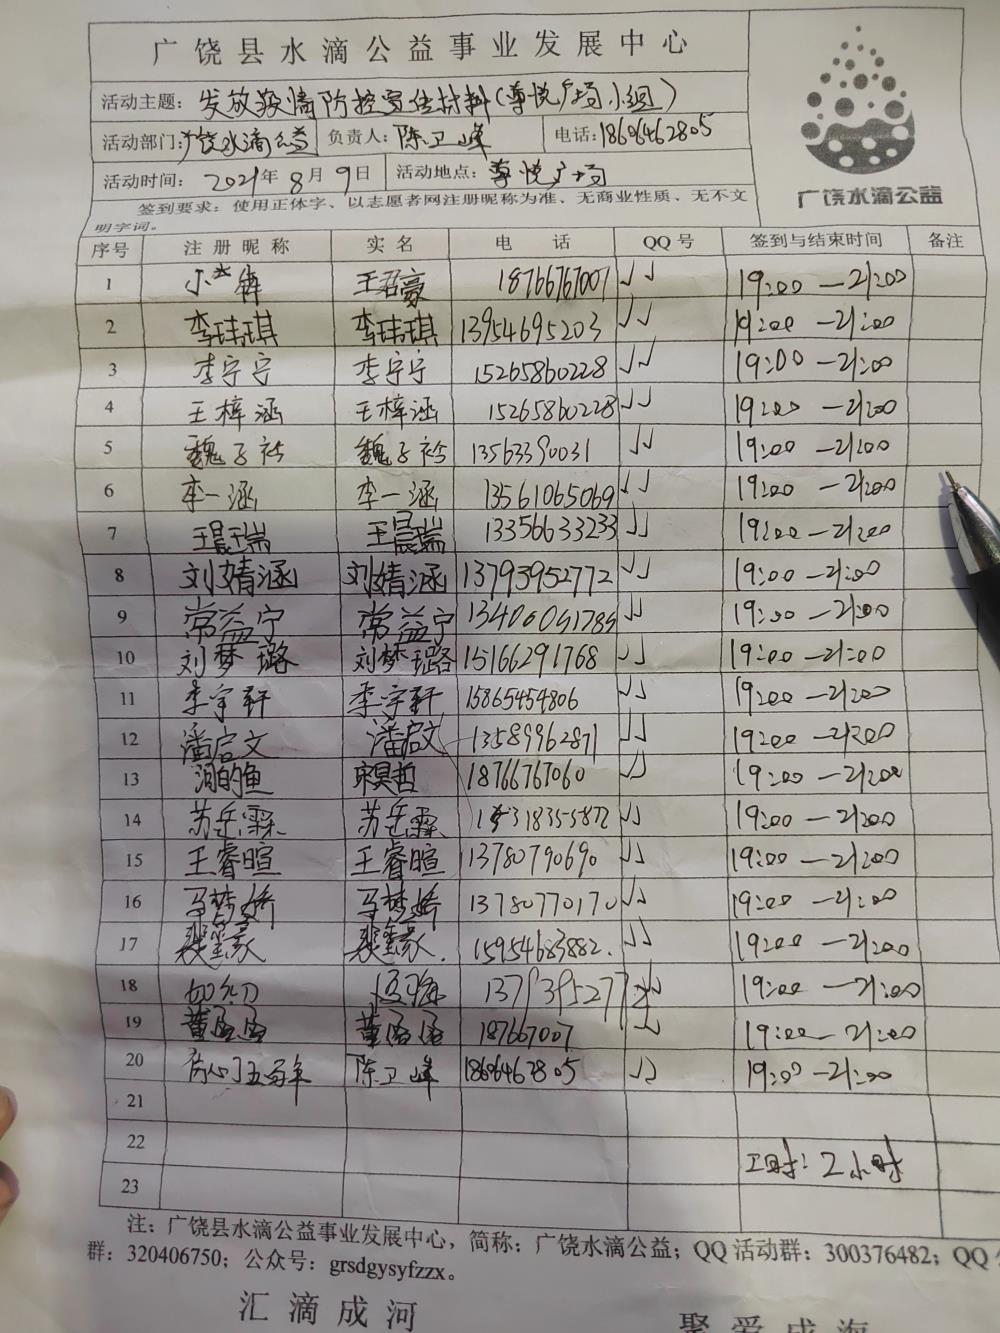 广饶县水滴公益事业发展中心
活动主题：发放疫情防控宣传材料（尊悦广场小组）
活动部门：广饶水滴公益 负责人：陈卫峰 电话：18606462805
活动时间：2021年8月9日 活动地点：尊悦广场
广饶水滴公益
签到要求：使用正体字、以志愿者网注册昵称为准、无商业性质、无不文
明字词。
序号 注册昵称 实名 电话 QQ号 签到与结束时间 备注
1 王君豪 18766767007 √√ 19:00—21:00
2 李玮琪 李玮琪 13954695203 √√ 19:00—21:00
3 李宁宁 李宁宁 15265860228 √√ 19:00—21:00
4 王梓涵 王梓涵 15265860228 √√ 19:00—21:00
5 魏子衿 魏子衿 13563390031 √√ 19:00—21:00
6 李一涵 李一涵 13561065069 √√ 19:00—21:00
7 王晨瑞 王晨瑞 13356633233 √√ 19:00—21:00
8 刘婧涵 刘婧涵 13793952772 √√ 19:00—21:00
9 常益宁 常益宁 13406051785 √√ 19:00—21:00
10 刘梦璐 刘梦璐 15166291768 √√ 19:00—21:00
11 李宇轩 李宇轩 15865454806 √√ 19:00—21:00
12 潘启文 潘启文 13589962871 √√ 19:00—21:00
13 泪的鱼 宋昊哲 18766767060 √√ 19:00—21:00
14 苏岳霖 苏岳霖 √√ 19:00—21:00
15 王睿暄 王睿暄 13780790690 √√ 19:00—21:00
16 马梦娇 马梦娇 13780770170 √√ 19:00—21:00
17 15954683882. √√ 19:00—21:00
18 19:00—21:00
19 董函函 董函函 187667007 √√ 19:00—21:00
20 陈卫峰 18606462805 √√ 19:00—21:00
21
22 工时：2小时
23
注：广饶县水滴公益事业发展中心，简称：广饶水滴公益；QQ活动群：300376482；QQ
群：320406750；公众号：grsdgysyfzzx。
汇滴成河 聚爱成海